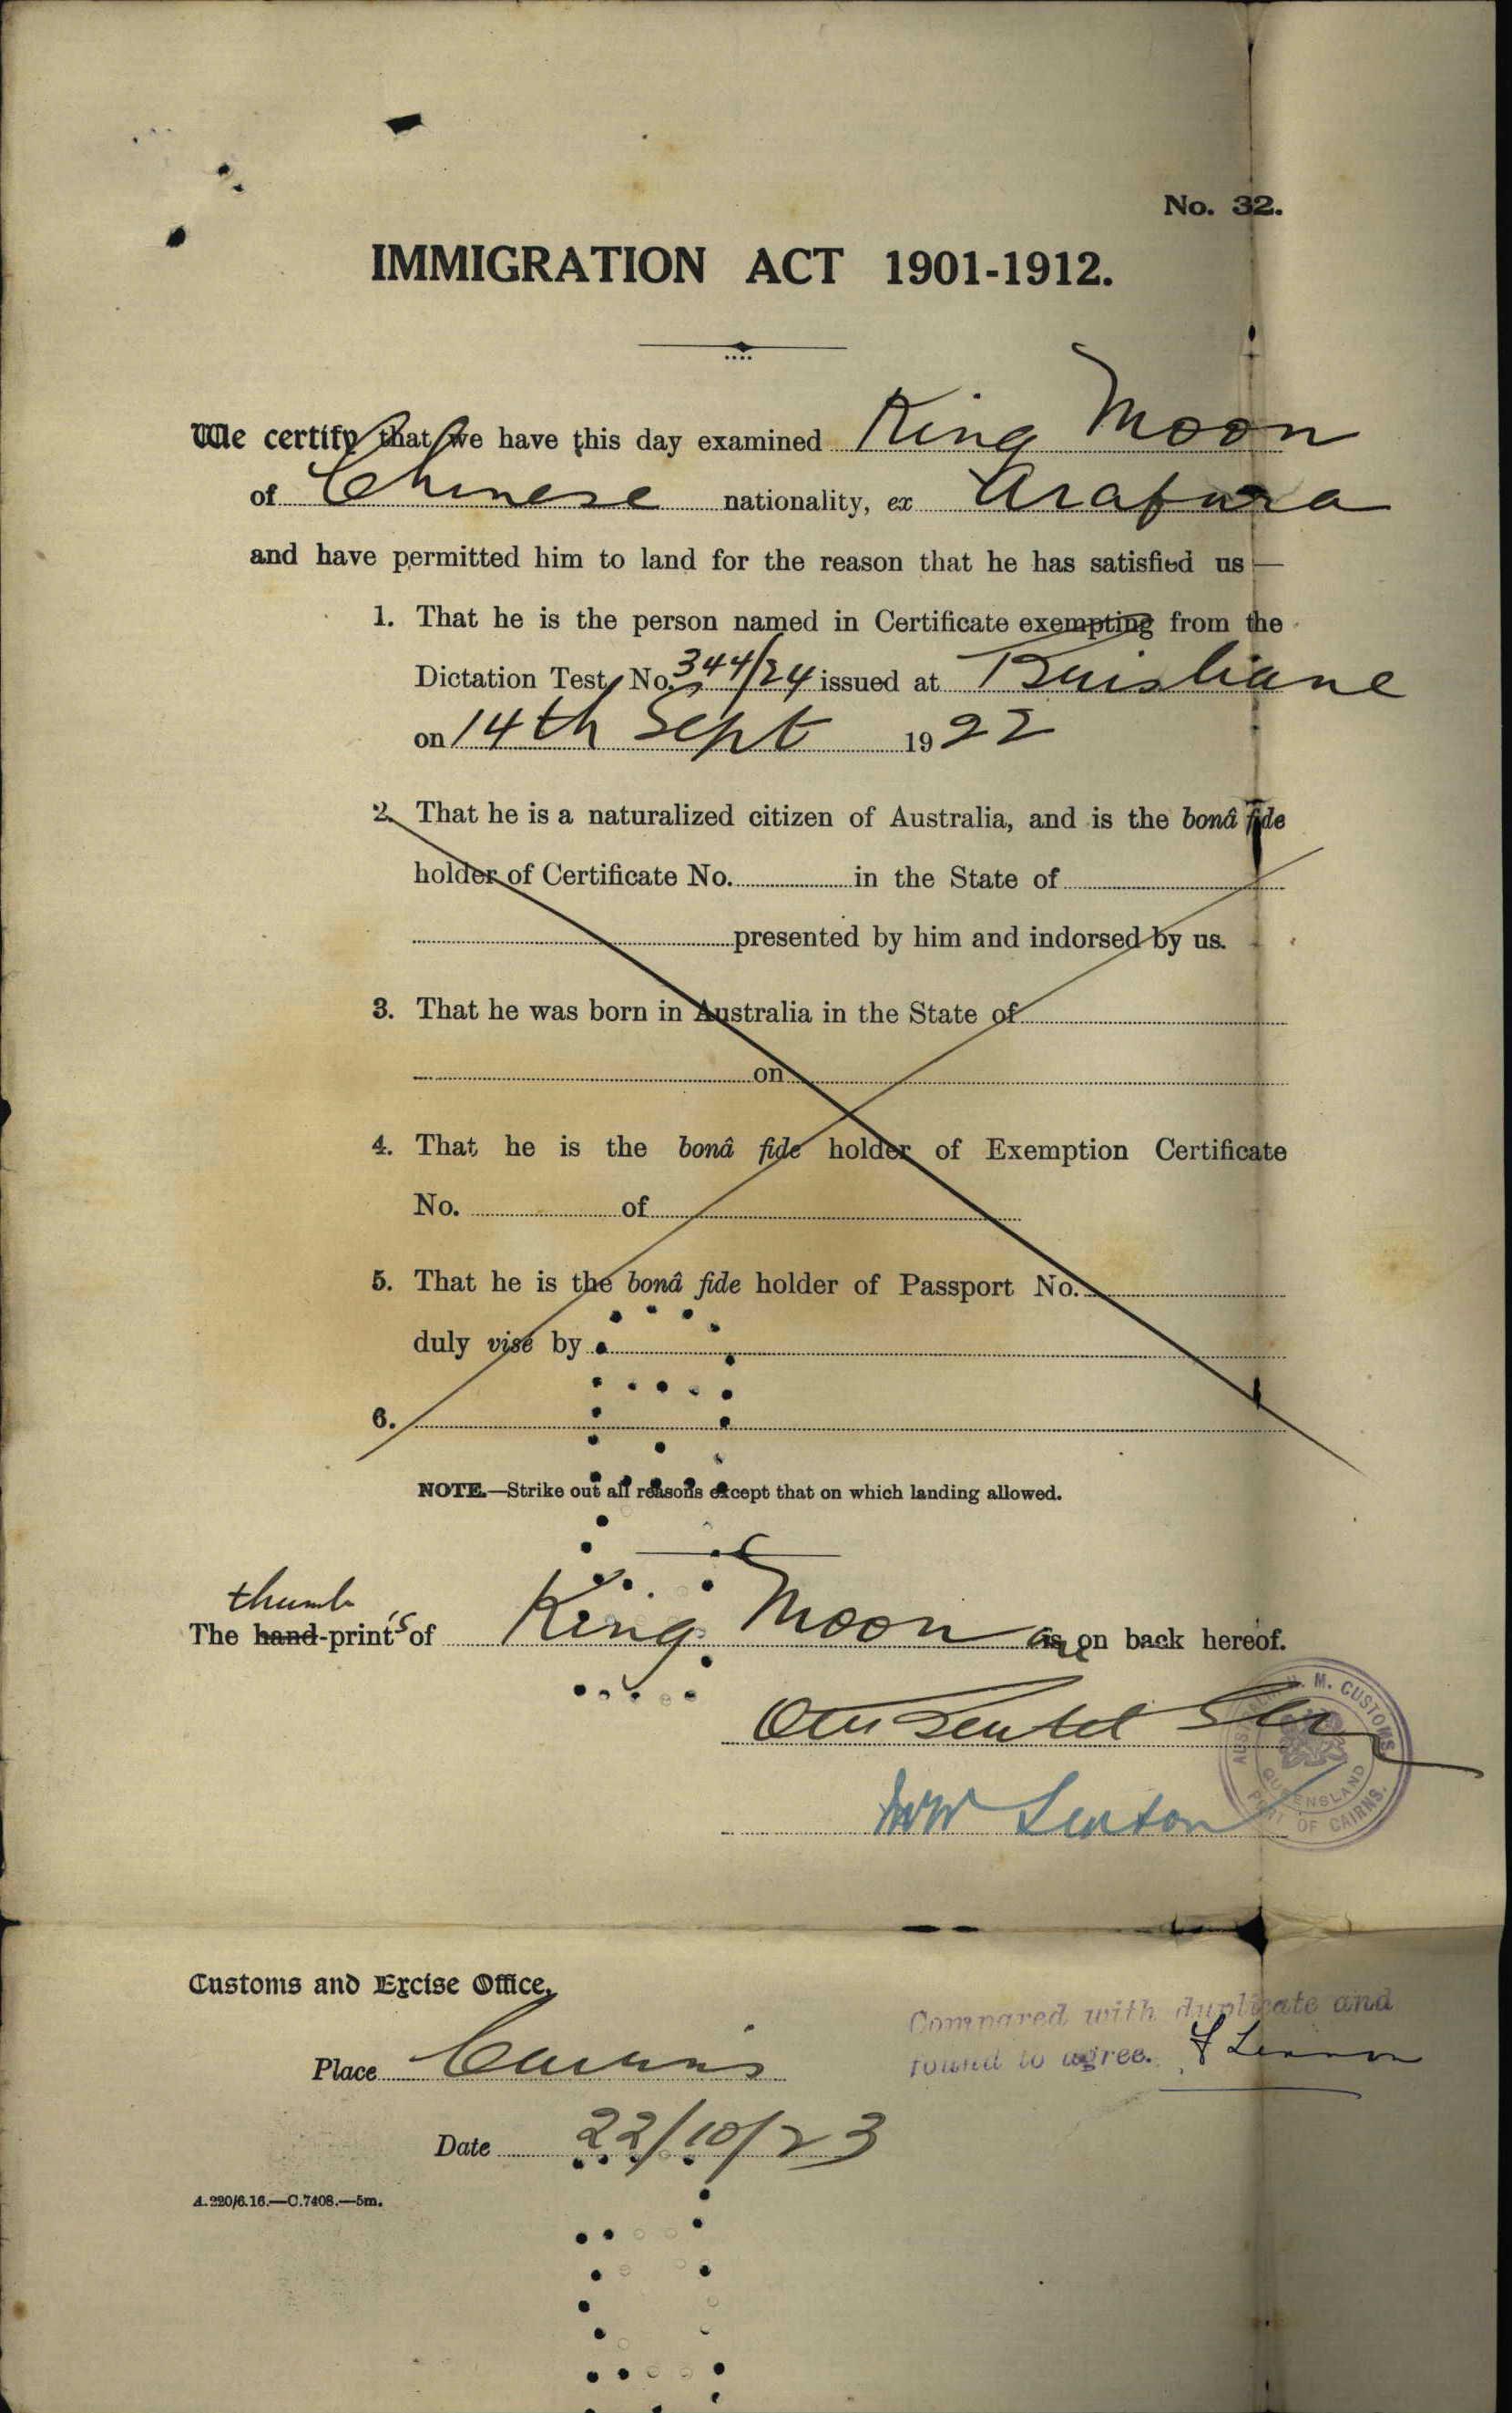 No. 32.
IMMIGRATION ACT 1901-1912.
We certify that we have this day examined King Moon
of Chinese nationality, ex Arafura
and have permitted him to land for the reason that he has satisfied us—
1. That he is the person named in Certificate exempting from the
Dictation Test, No. 344/24 issued at Brisbane
on 14th Sept 1922
2. That he is a naturalized citizen of Australia, and is the bonâ fide
holder of Certificate No. in the State of
presented by him and indorsed by us.
3. That he was born in Australia in the State of
on
4. That he is the bonâ fide holder of Exemption Certificate
No. of
5. That he is the bonâ fide holder of Passport No.
duly visé by
6.
NOTE.—Strike out all reasons except that on which landing allowed.
thumb
The hand-print's of King Moon are on back hereof.
AUSTRALIA H. M. CUSTOMS
QUEENSLAND
PORT OF CAIRNS.
Customs and Excise Office,
Compared with duplicate and
Place Cairns
found to agree.
Date 22/10/23
A.220/6.16.—C.7408.—5m.